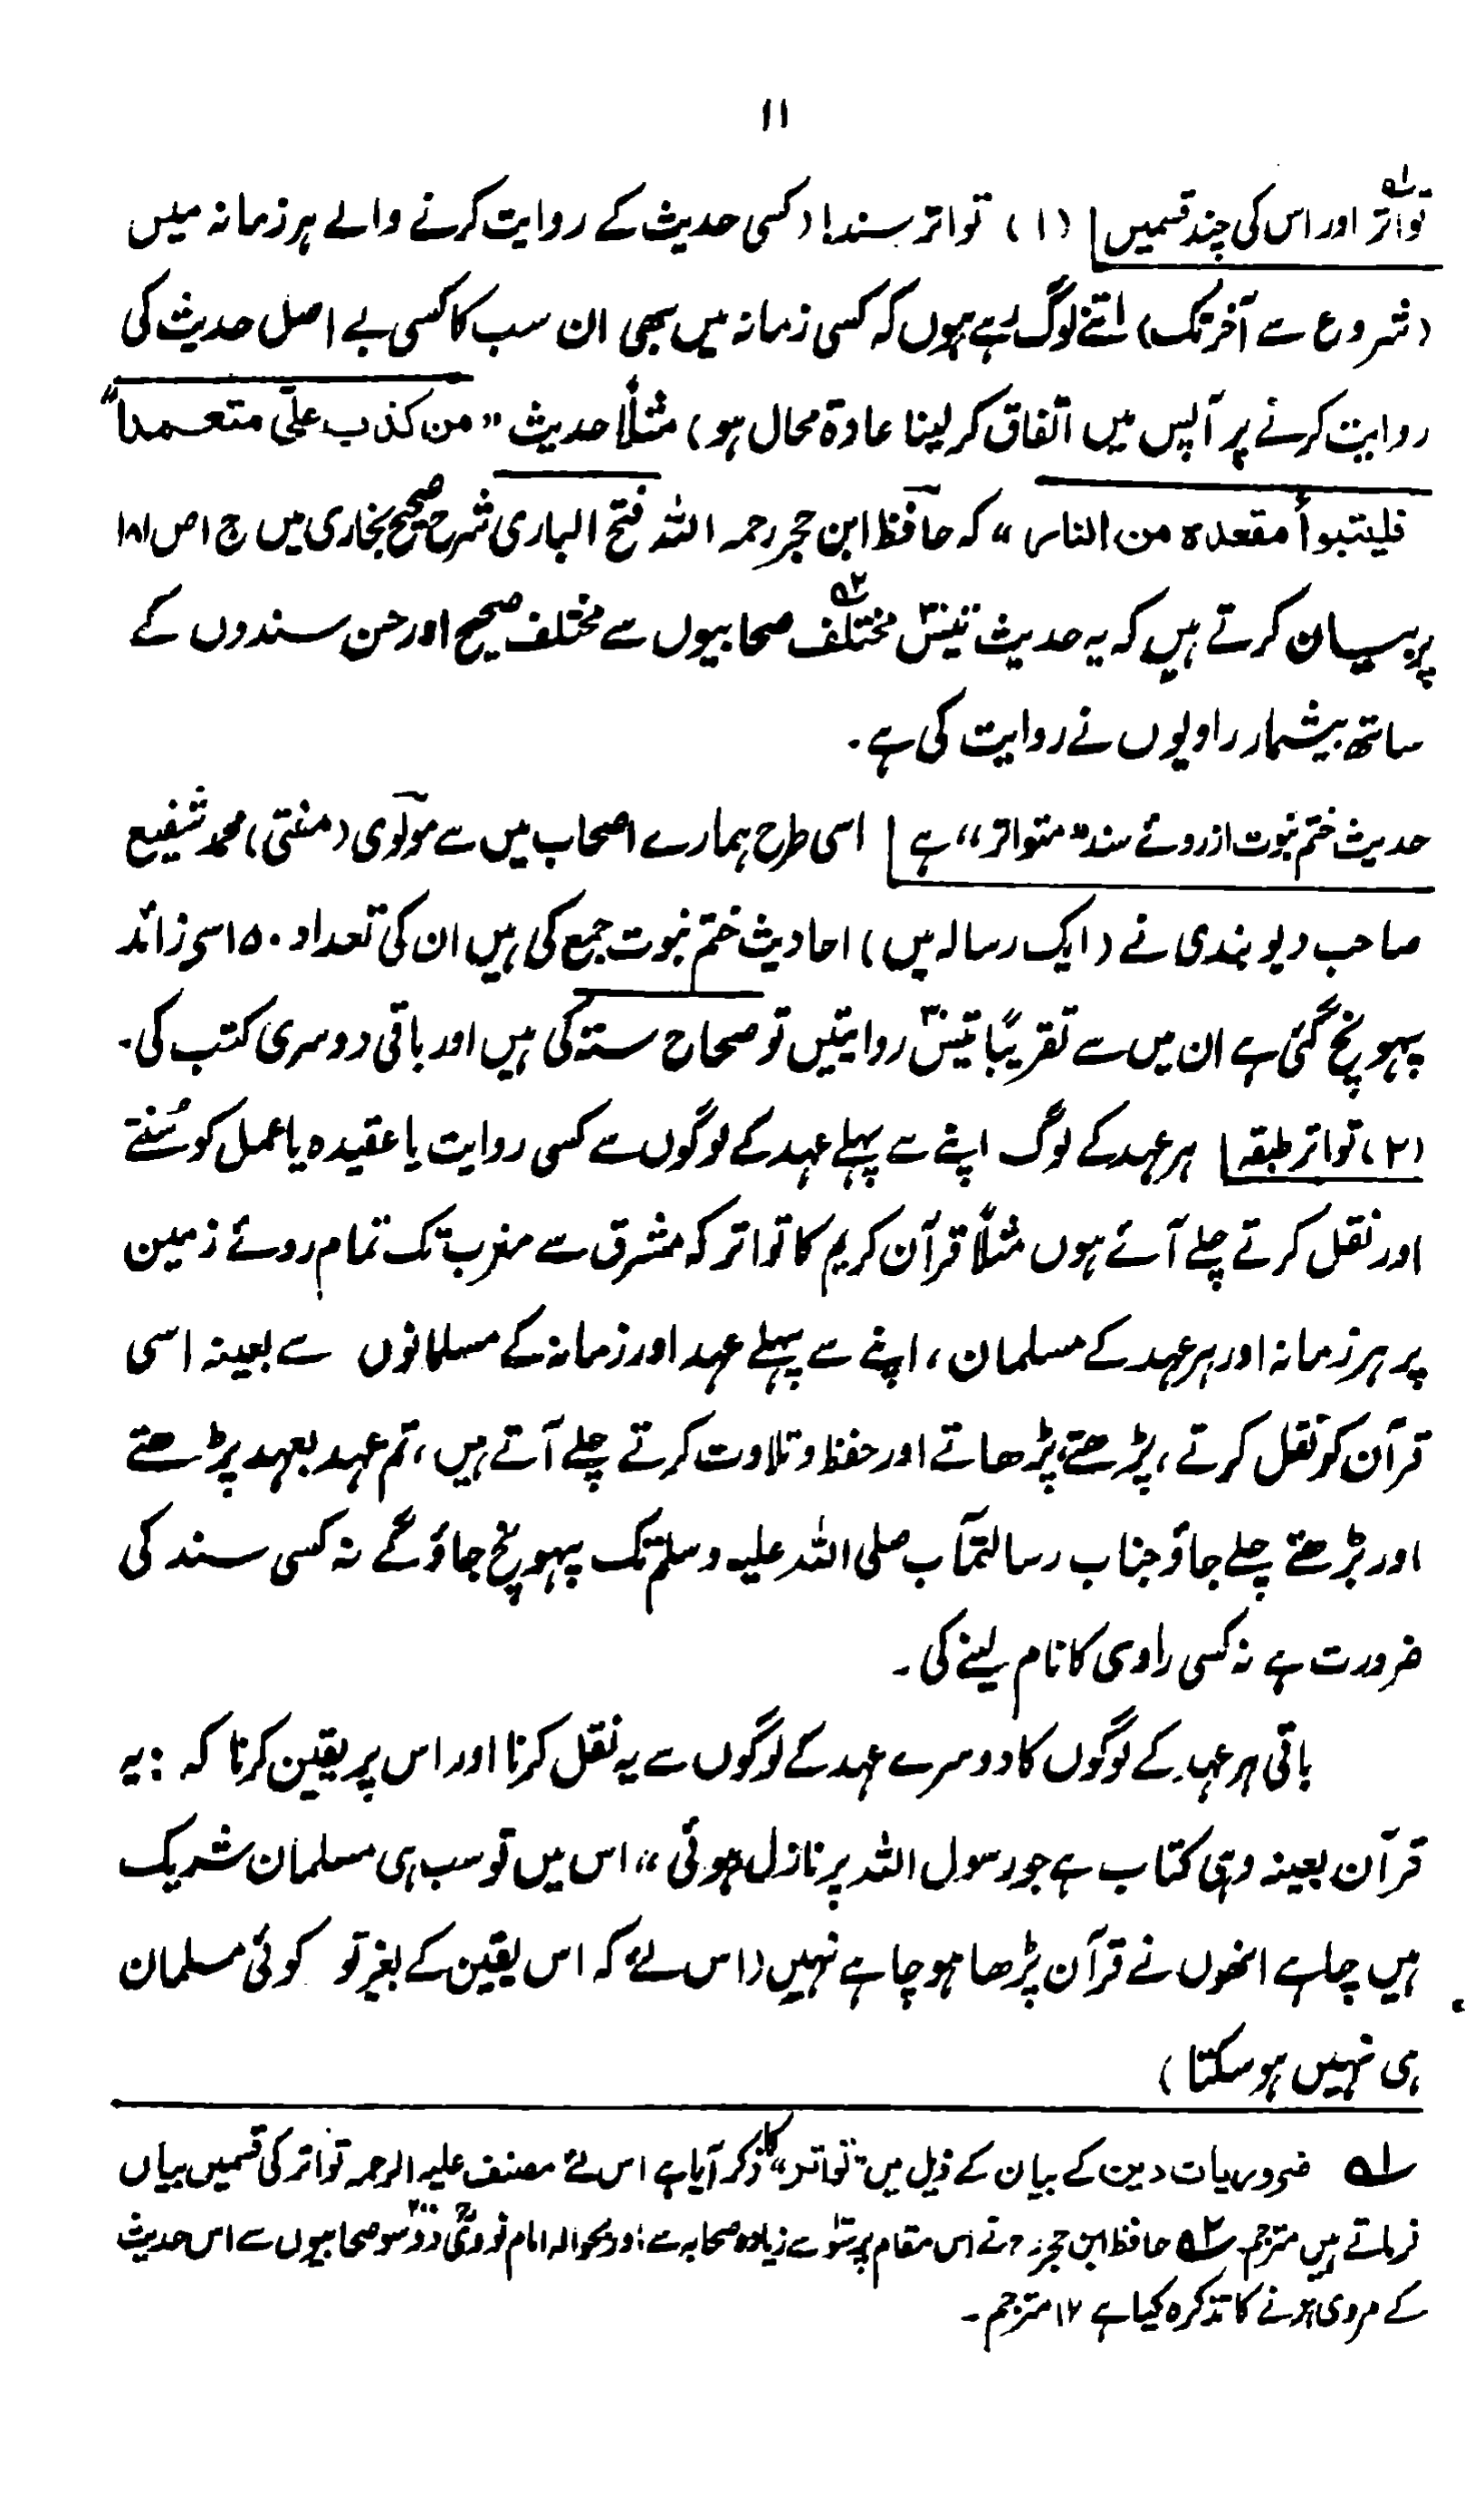 ۱۱
تواتر۱ اور اس کی چند قسمیں (۱) تواتر سند! (کسی حدیث کے روایت کرنے والے ہر زمانہ میں
(شروع سے آخر تک) اتنے لوگ رہے ہوں کہ کسی زمانہ میں بھی ان سب کا کسی بے اصل حدیث کی
روایت کرنے پر آپس میں اتفاق کر لینا عادۃ محال ہو) مثلاً حدیث "من کذب علیّ متعمدا"
فلیتبوأ مقعدہ من النار" کہ حافظ ابن حجر رحمہ اللہ فتح الباری شرح صحیح بخاری میں ج ۱ ص ۱۸۱
پر بیان کرتے ہیں کہ یہ حدیث تیس مختلف۲ صحابیوں سے مختلف صحیح اور حسن سندوں کے
ساتھ بیشمار راویوں نے روایت کی ہے۔
حدیث ختم نبوت از روئے سند "متواتر" ہے اسی طرح ہمارے اصحاب میں سے مولوی (مفتی) محمد شفیع
صاحب دیوبندی نے (ایک رسالہ میں) احادیث ختم نبوت جمع کی ہیں ان کی تعداد ۱۵۰ سی زائد
پہونچ گئی ہے ان میں سے تقریباً تیس روایتیں تو صحاح ستہ کی ہیں اور باقی دوسری کتب کی۔
(۲) تواتر طبقہ ہر عہد کے لوگ اپنے سے پہلے عہد کے لوگوں سے کسی روایت یا عقیدہ یا عمل کو سُنتے
اور نقل کرتے چلے آئے ہوں مثلاً قرآن کریم کا تواتر کہ مشرق سے مغرب تک تمام روئے زمین
پر ہر زمانہ اور ہر عہد کے مسلمان، اپنے سے پہلے عہد اور زمانہ کے مسلمانوں سے بعینہ اسی
قرآن کو نقل کرتے، پڑھتے پڑھاتے اور حفظ و تلاوت کرتے چلے آتے ہیں، تم عہد بعہد پڑھتے
اور بڑھتے چلے جاؤ جناب رسالتمآب صلی اللہ علیہ وسلم تک پہونچ جاؤ گے نہ کسی سند کی
ضرورت ہے نہ کسی راوی کا نام لینے کی۔
باقی ہر عہد کے لوگوں کا دوسرے عہد کے لوگوں سے یہ نقل کرنا اور اس پر یقین کرنا کہ: یہ
قرآن بعینہ وہی کتاب ہے جو رسول اللہ پر نازل ہوئی" اس میں تو سب ہی مسلمان شریک
ہیں چاہے انھوں نے قرآن پڑھا ہو چاہے نہیں (اس لئے کہ اس یقین کے بغیر تو کوئی مسلمان
ہی نہیں ہو سکتا)
۱ ضروریات دین کے بیان کے ذیل میں "تواتر" کا ذکر آیا ہے اس لئے مصنف علیہ الرحمہ تواتر کی قسمیں بیاں
فرماتے ہیں مترجم ۲ حافظ ابن حجرؒ نے اس مقام پر سو سے زیادہ صحابہ سے اور بحوالہ امام نوویؒ دو سو صحابیوں سے اس حدیث
کے مروی ہونے کا تذکرہ کیا ہے ۱۲ مترجم۔